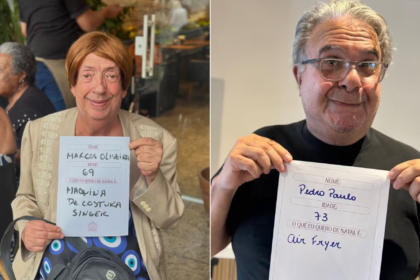 NOME:
MARCOS OLIVEIRA
IDADE:
69
O QUE EU QUERO DE NATAL É:
MAQUINA
DE COSTURA
SINGER
NOME:
Pedro Paulo
IDADE:
73
O QUE EU QUERO DE NATAL É:
Air Fryer